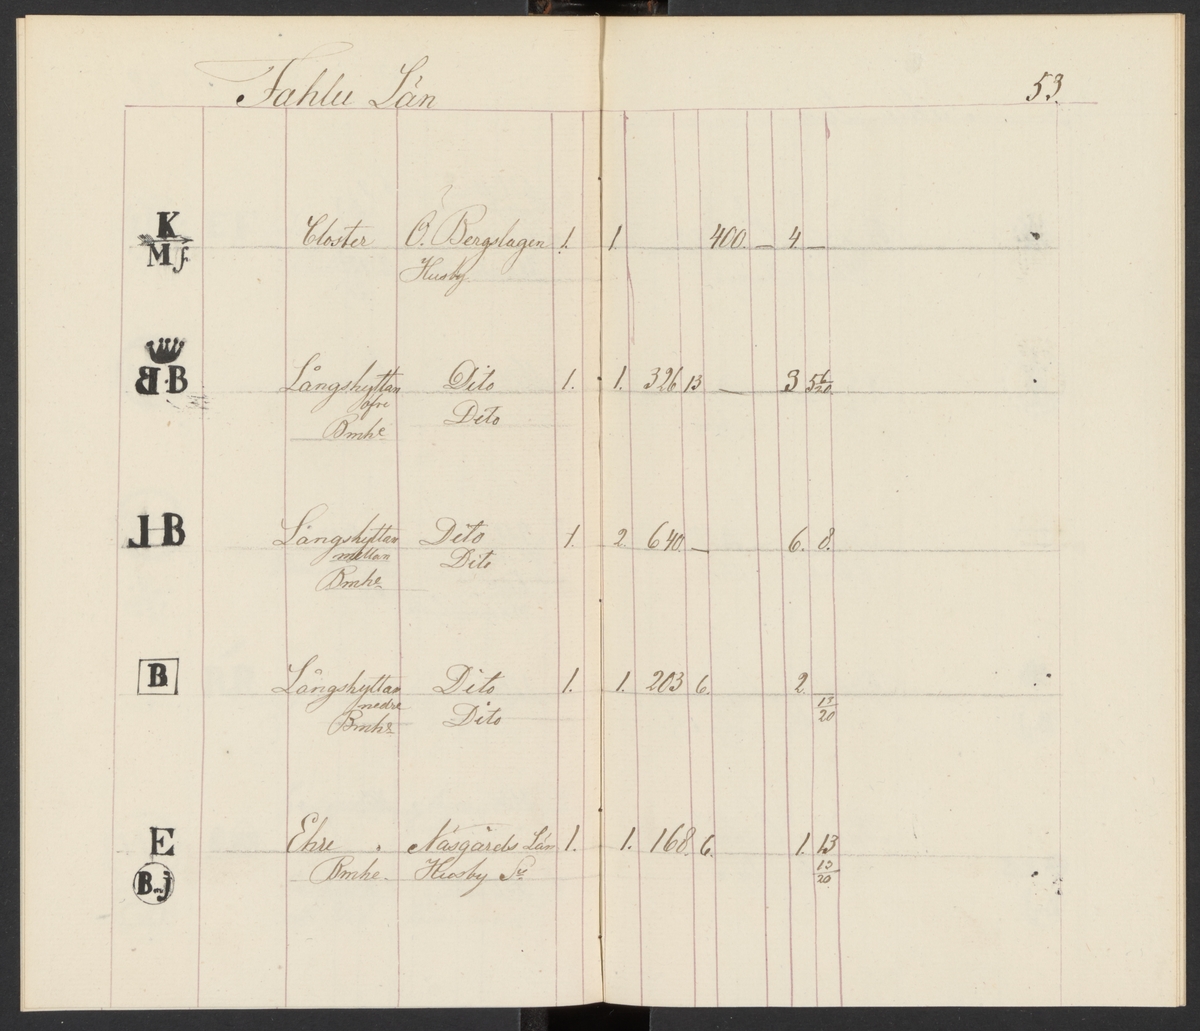 Fahlu Län
53.
K
M f.
Closter Ö. Bergslagen 1. 1. 400. — 4. —
Husby
B·B
Långshyttan Dito 1. 1. 326 13 — 3 5 6/20.
öfre Dito
Bmhe
JB
Långshyttan Dito 1. 2. 640. — 6. 8.
mellan Dito
Bmhe
B
Långshyttan Dito 1. 1. 203 6. 2.
nedre Dito 13/20
Bmhe
E
Ehre Näsgårds Län 1. 1. 168. 6. 1. 13
Bmhe. Husby Sn 13/20
B J